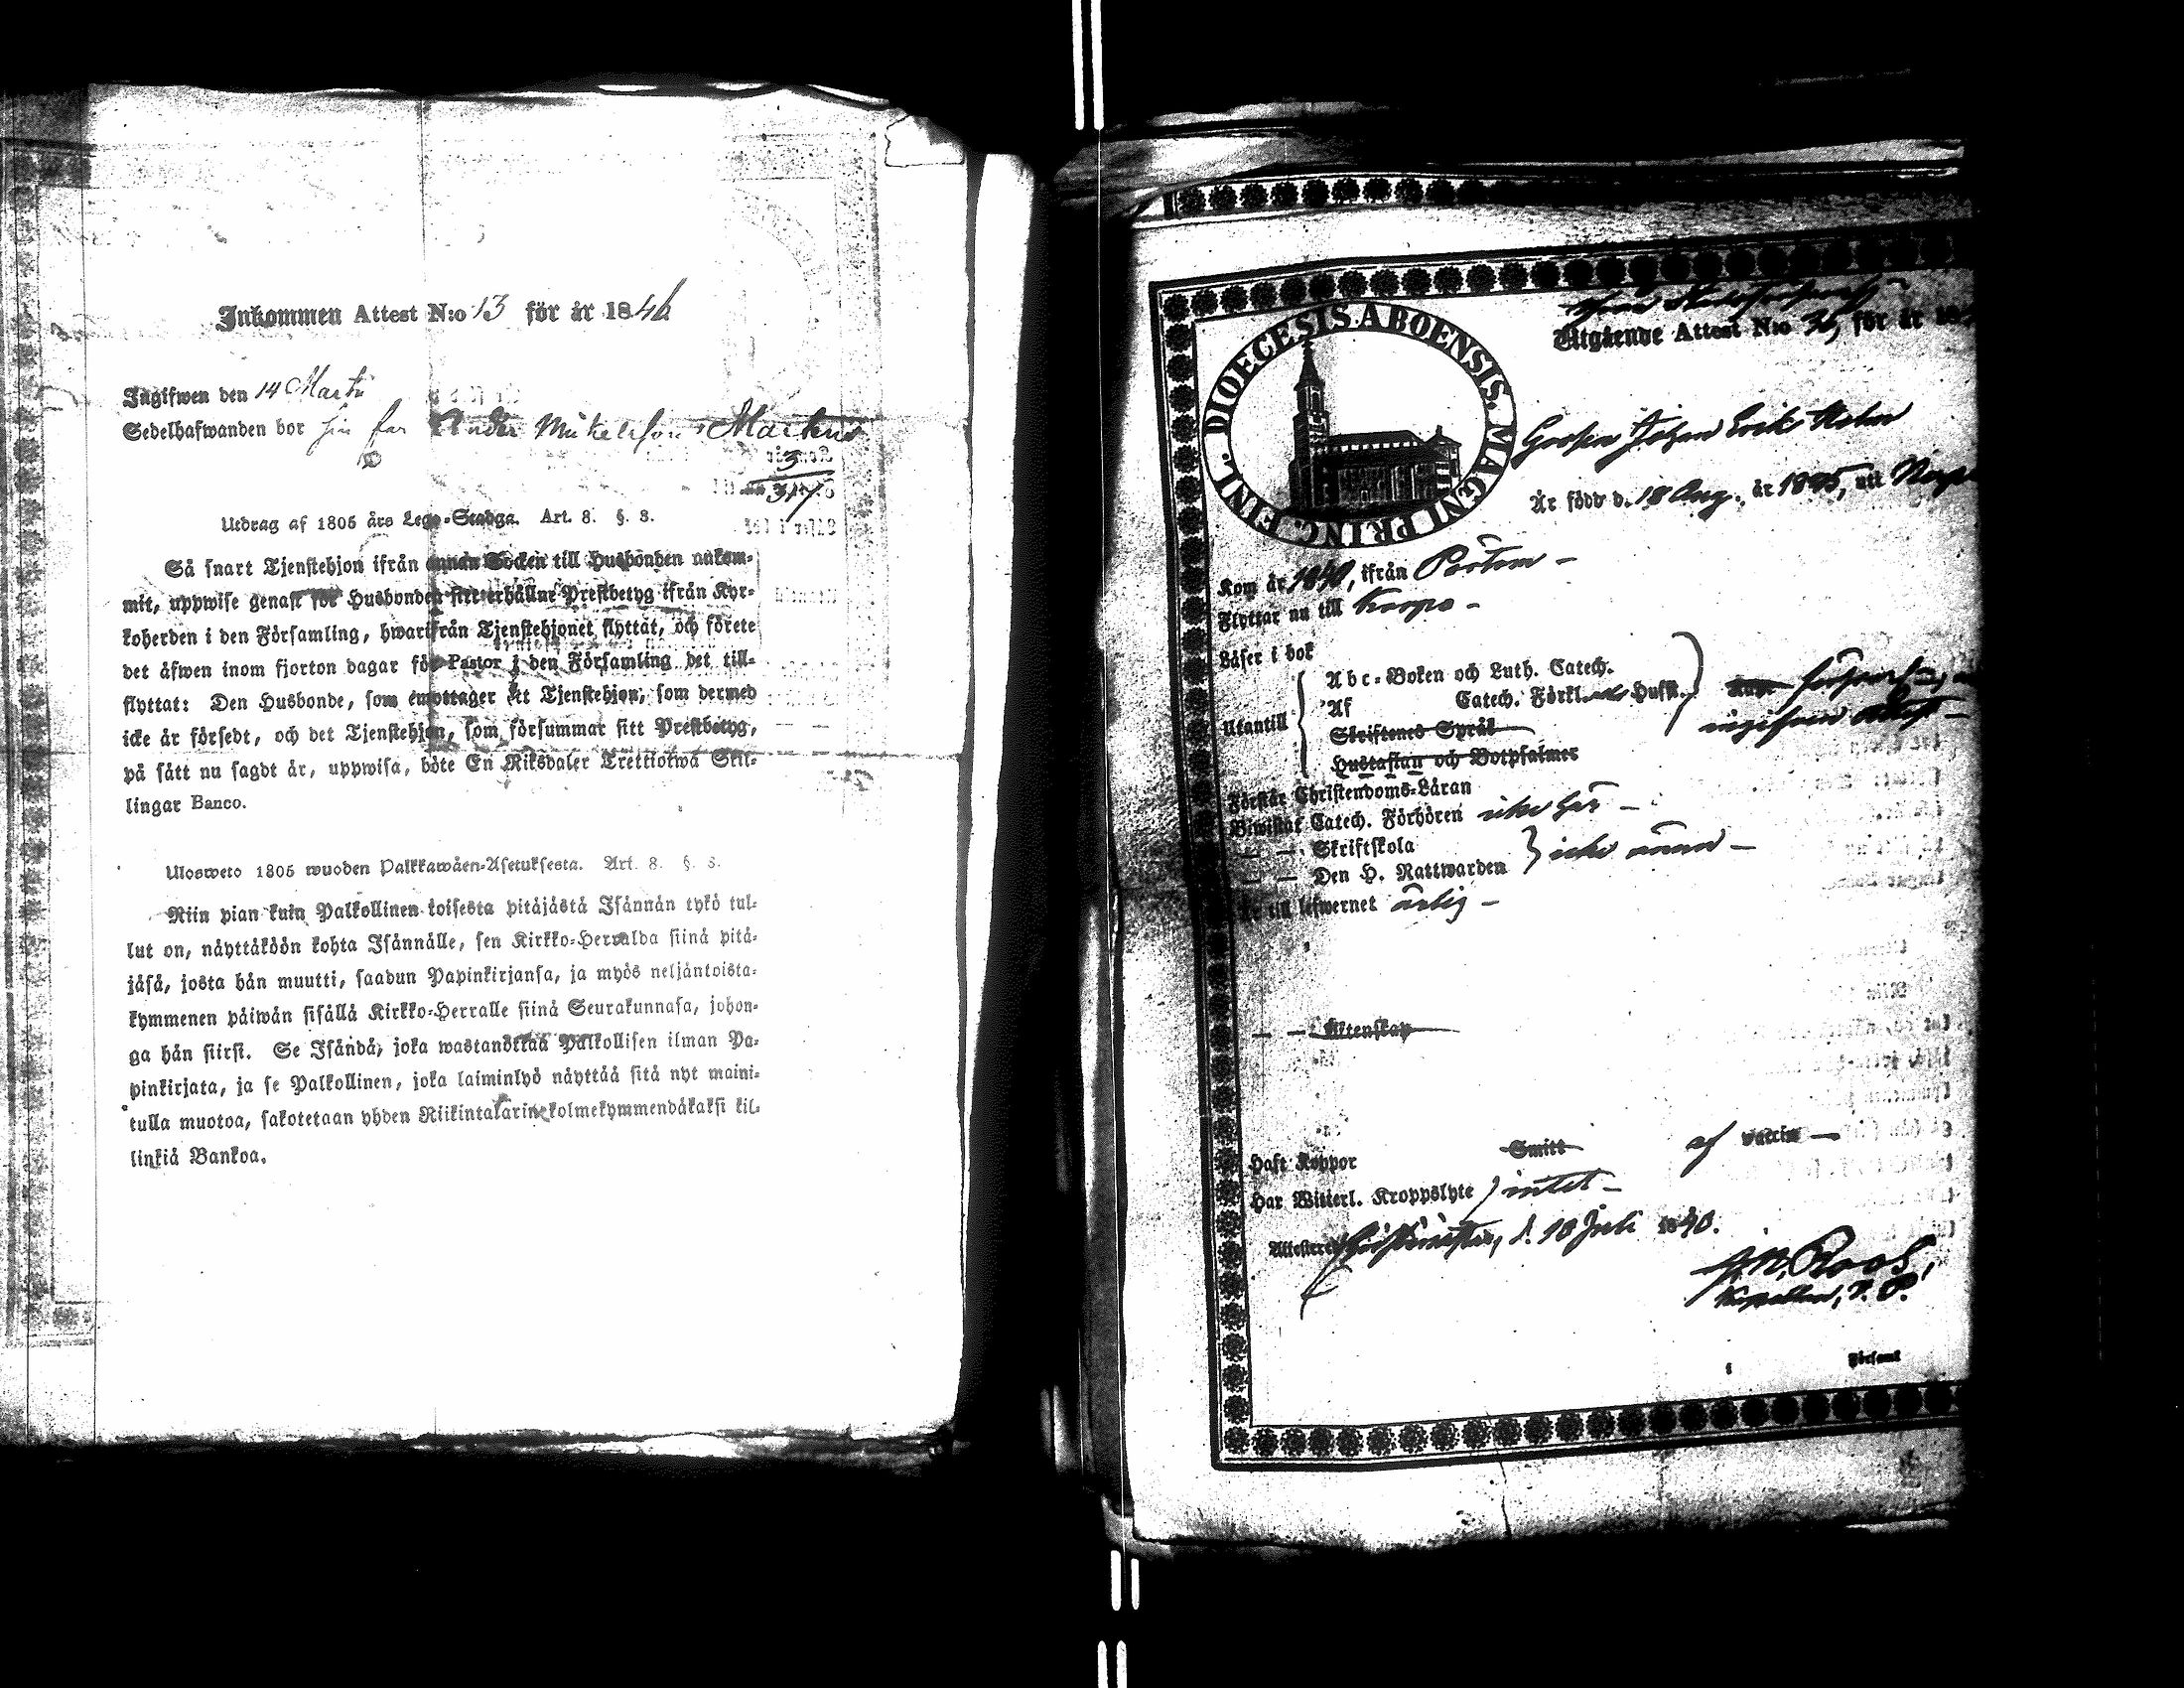 Inkommen Attest N:o 13 för år 1846
Ingifwen den 14 Martii
Sedelhafwanden bor hin far Ander Mikelsson Markus
3
317
Utdrag af 1805 års Lego-Stadga. Art. 8. §. 3.
Så snart Tjenstehjon ifrån annan Socken till Husbonden ankom-
mit, uppwise genast för Husbonden sitt erhållne Prestbetyg ifrån Kyr-
koherden i den Församling, hwarifrån Tjenstehjonet flyttat, och förete
det äfwen inom fjorton dagar för Pastor i den Församling det till-
flyttat: Den Husbonde, som emottager ett Tjenstehjon, som dermed
icke är försedt, och det Tjenstehjon, som försummar sitt Prestbetyg,
på sätt nu sagdt är, uppwisa, böte En Riksdaler Trettiotwå Skil-
lingar Banco.
Ulosweto 1805 wuoden Palkkawäen-Asetuksesta. Art. 8. §. 3.
Niin pian kuin Palkollinen toisesta pitäjästä Isännän tykö tul-
lut on, näyttäköön kohta Isännälle, sen Kirkko-Herralda siinä pitä-
jäsä, josta hän muutti, saadun Papinkirjansa, ja myös neljäntoista-
kymmenen päiwän sisällä Kirkko-Herralle siinä Seurakunnasa, johon-
ga hän siirsi. Se Isändä, joka wastanottaa Palkollisen ilman Pa-
pinkirjata, ja se Palkollinen, joka laiminlyö näyttää sitä nyt maini-
tulla muotoa, sakotetaan yhden Riikintalarin kolmekymmendäkaksi kil-
linkiä Bankoa.
DIOECESIS ABOENSIS. MAGNI PRINC. FINL.
Utgående Attest N:o för år
Gossen Johan Erik Holm
Är född d. 18 Aug. år 1835, uti
Kom år 1840, ifrån Pörtom –
Flyttar nu till Korpo –
Läser i bok
Utantill
Abc-Boken och Luth. Catech.
Af Catech. Förkl. Hust.
Skriftenes Språk
Hustaflan och Botpsalmer
ingifven attest –
Förstår Christendoms-Läran
Biwistat Catech. Förhören icke här –
— — Skriftskola
— — Den H. Nattwarden
icke ännu –
Är till lefwernet ärlig –
— — Äktenskap
Haft Koppor Smitt af vaccin –
Har Witterl. Kroppslyte intet –
Attesterar Christinestad, d. 18 Juli 1840.
J. N. Roos,
Kapellan, v. P.
i Församl